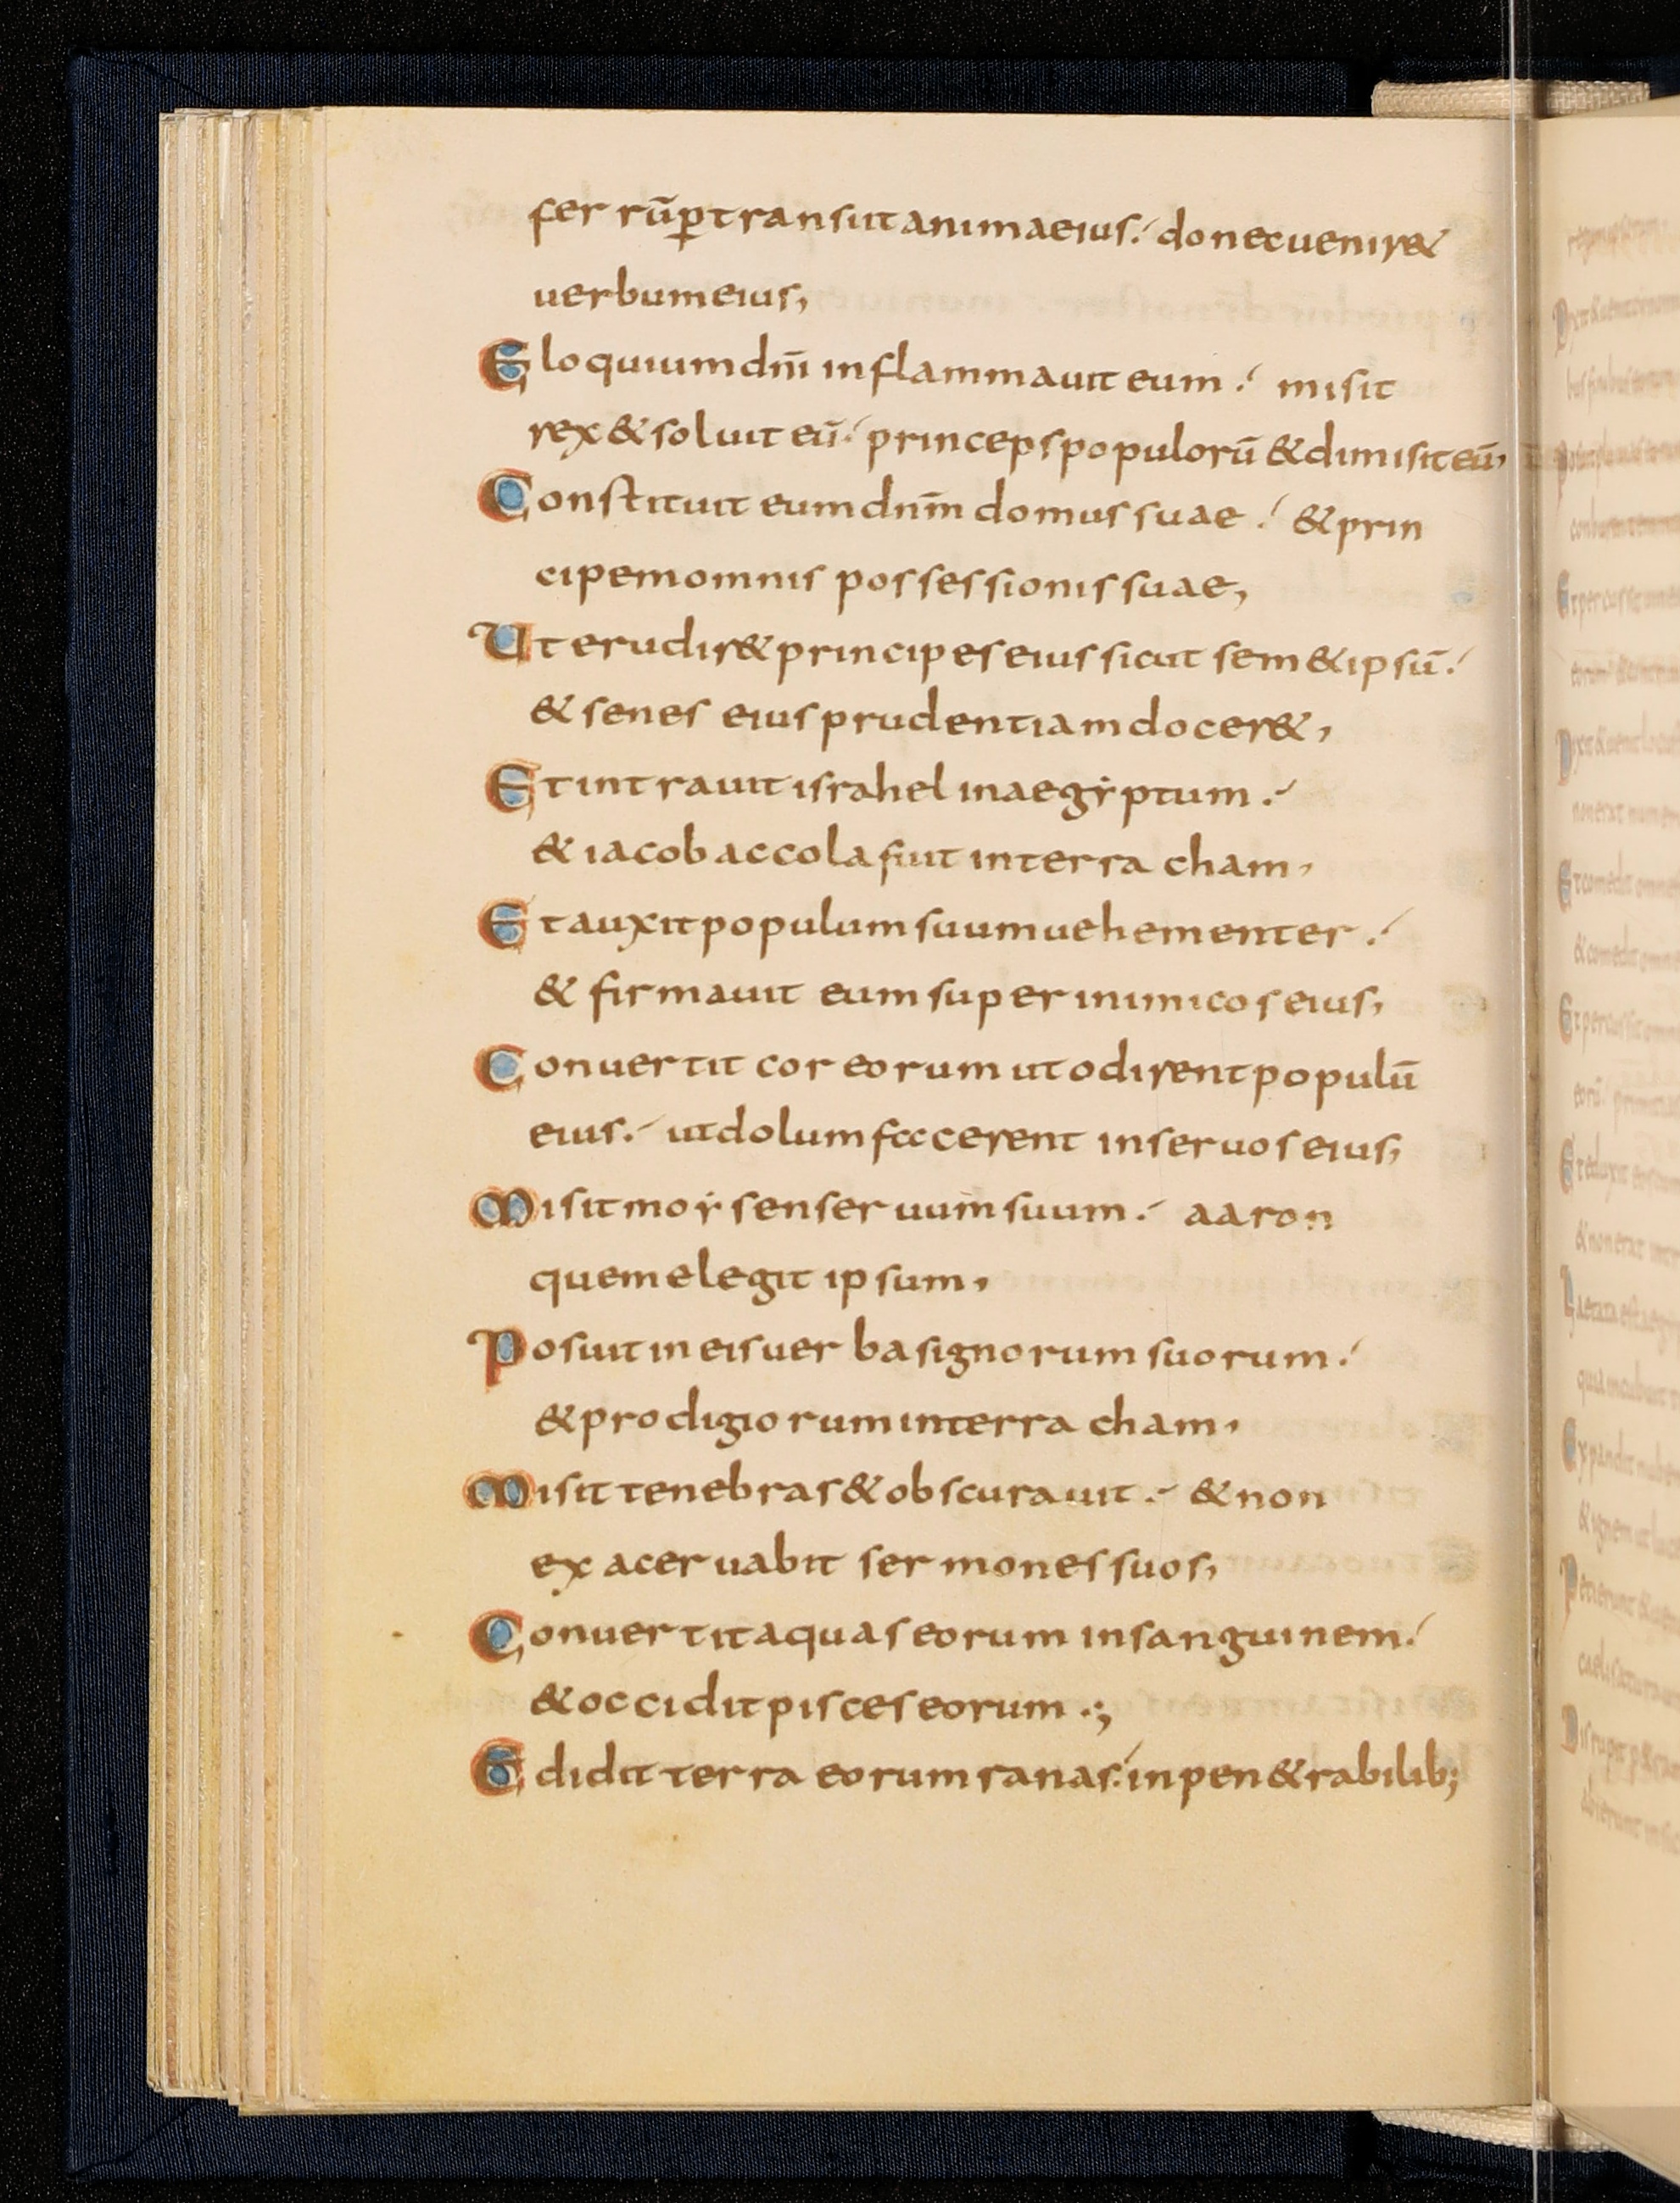 ferrū ꝑtransiit anima eius: donec uenir&
uerbum eius,
Eloquium dn̄i inflammauit eum: misit
rex & soluit eū: princeps populorū & dimisit eū,
Constituit eum dn̄m domus suae: & prin
cipem omnis possessionis suae,
Ut erudir& principes eius sicut sem&ipsū:
& senes eius prudentiam docer&,
Et intrauit israhel in aegẏptum:
& iacob accola fuit in terra cham,
Et auxit populum suum uehementer:
& firmauit eum super inimicos eius,
Conuertit cor eorum ut odirent populū
eius: ut dolum faccerent in seruos eius,
Misit moẏsen seruum suum: aaron
quem elegit ipsum,
Posuit in eis uerba signorum suorum:
& prodigiorum in terra cham,
Misit tenebras & obscurauit: & non
exaceruabit sermones suos,
Conuertit aquas eorum in sanguinem:
& occidit pisces eorum.;
Edidit terra eorum ranas: in pen&rabilib;